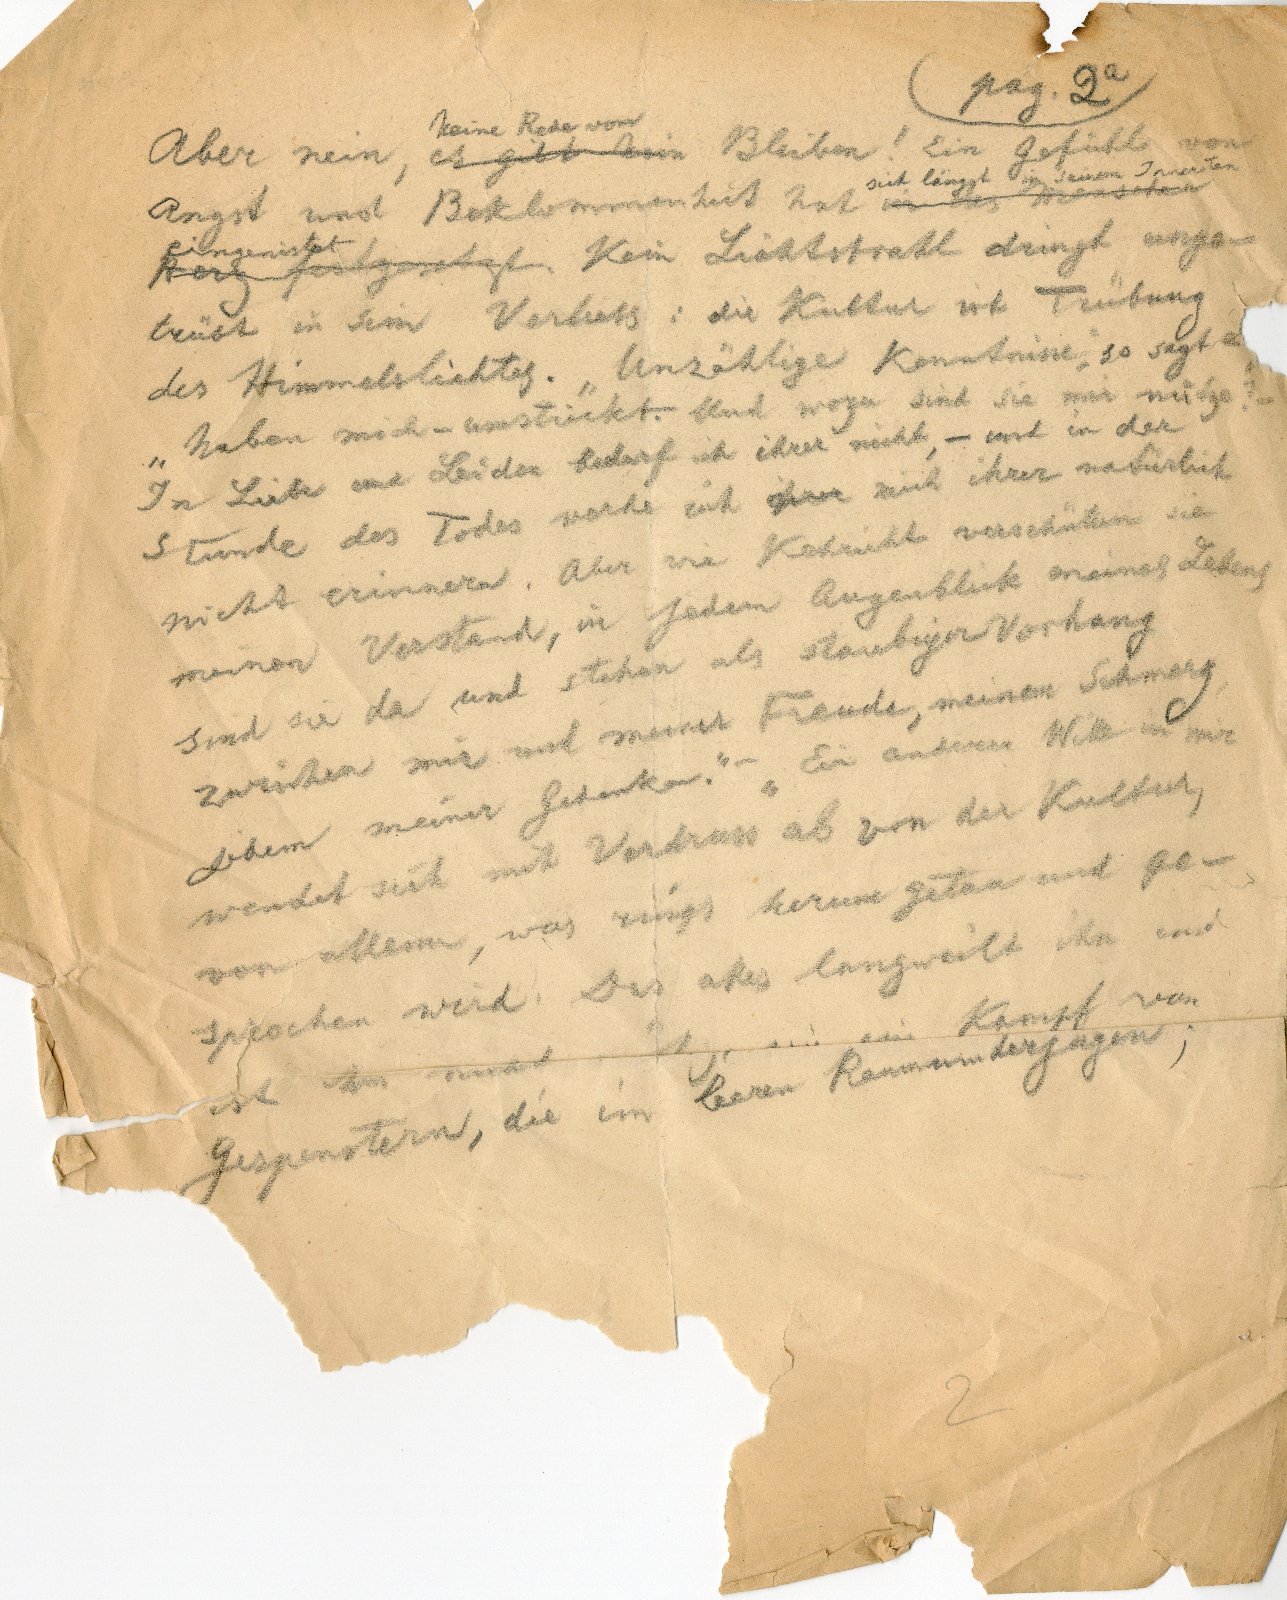 pag. 2a
keine Rede von
Aber nein, es gibt kein Bleiben! Ein Gefühl von
sich längst in seinem Innersten
Angst und Beklommenheit hat in des Menschen
eingenistet
Herz festgesetzt. Kein Lichtstrahl dringt unge-
trübt in sein Verliess: die Kultur ist Trübung
des Himmelslichtes. „Unzählige Kenntnisse," so sagt er,
„haben mich umstrickt. Und wozu sind sie mir nütze? -
In Liebe und Leiden bedarf ich ihrer nicht, - und in der
Stunde des Todes werde ich mich ihrer natürlich
nicht erinnern. Aber wie Kehricht verschütten sie
meinen Verstand, in jedem Augenblick meines Lebens
sind sie da und stehen als staubiger Vorhang
zwischen mir und meiner Freude, meinem Schmerz,
jedem meiner Gedanken." - „Ein anderer Wille in mir
wendet sich mit Verdruss ab von der Kultur,
von allem, was rings herum getan und ge-
sprochen wird. Das alles langweilt ihn und
ist ihm wie ein Kampf von
Gespenstern, die im leeren Raum umherjagen;
2